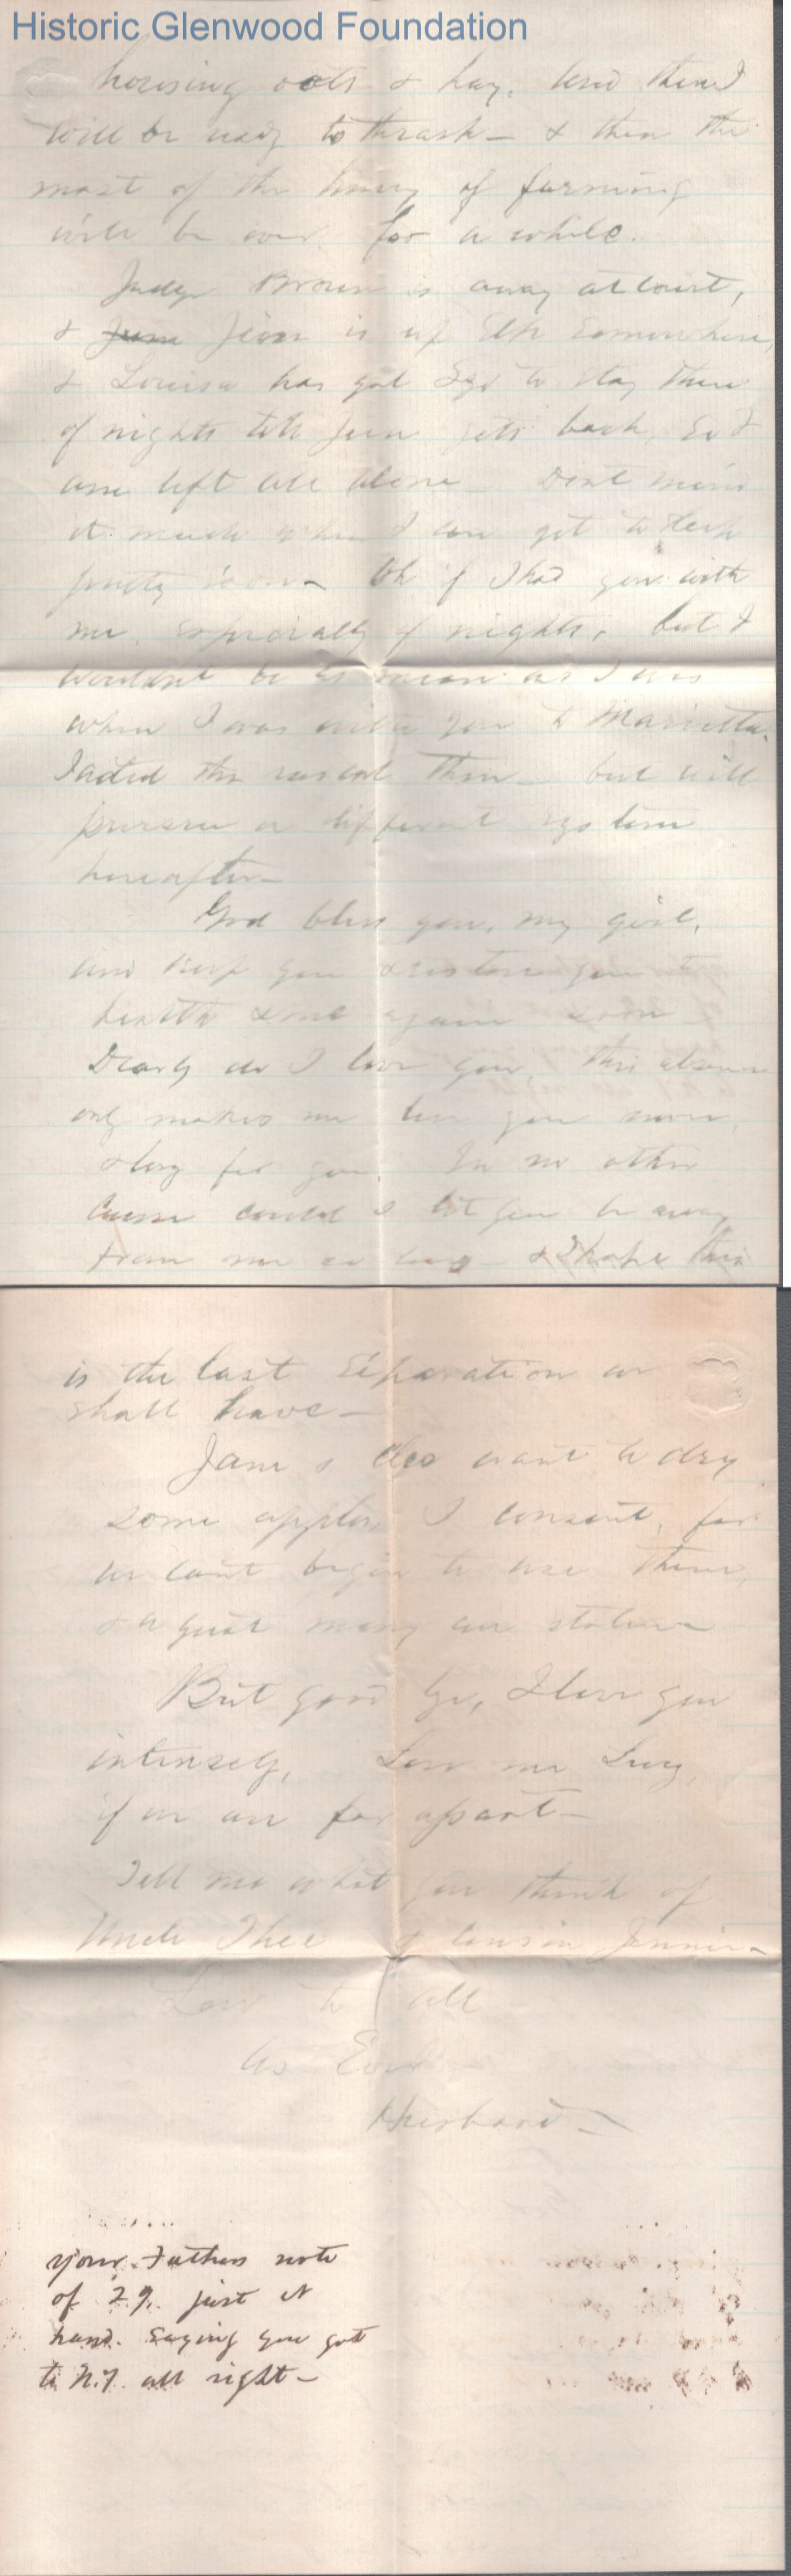 Historic Glenwood Foundation
housing oats & hay. And then I
will be ready to thrash — & then the
most of the hurry of farming
will be over for a while.
Judge Brown is away at court,
& Jean is up Elk Somewhere,
& Louisa has got to stay there
of nights till Jean gets back, So I
am left all alone — Dont mind
it much when I can get to sleep
pretty soon — Oh if I had you with
me, especially of nights, but I
wouldnt be as mean as I was
when I was with you to Marietta.
I acted the rascal then — but will
pursue a different system
hereafter —
God bless you, my girl,
and keep you & restore you to
health & me again soon
Dearly do I love you, this absence
only makes me love you more,
& long for you. In no other
cause could I let you be away
from me so long — & I hope this
is the last Separation we
shall have —
Jane & Cleo want to dry
some apples, I consent, for
we cant begin to use them,
& a great many are stolen —
But good by, I love you
intensely, Love me Lucy,
if we are far apart —
Tell me what you think of
Uncle Thee & Cousin Jennie —
Love to all
As Ever
Husband —
Your Fathers note
of 29. just at
hand. Saying you got
to N.Y. all right —